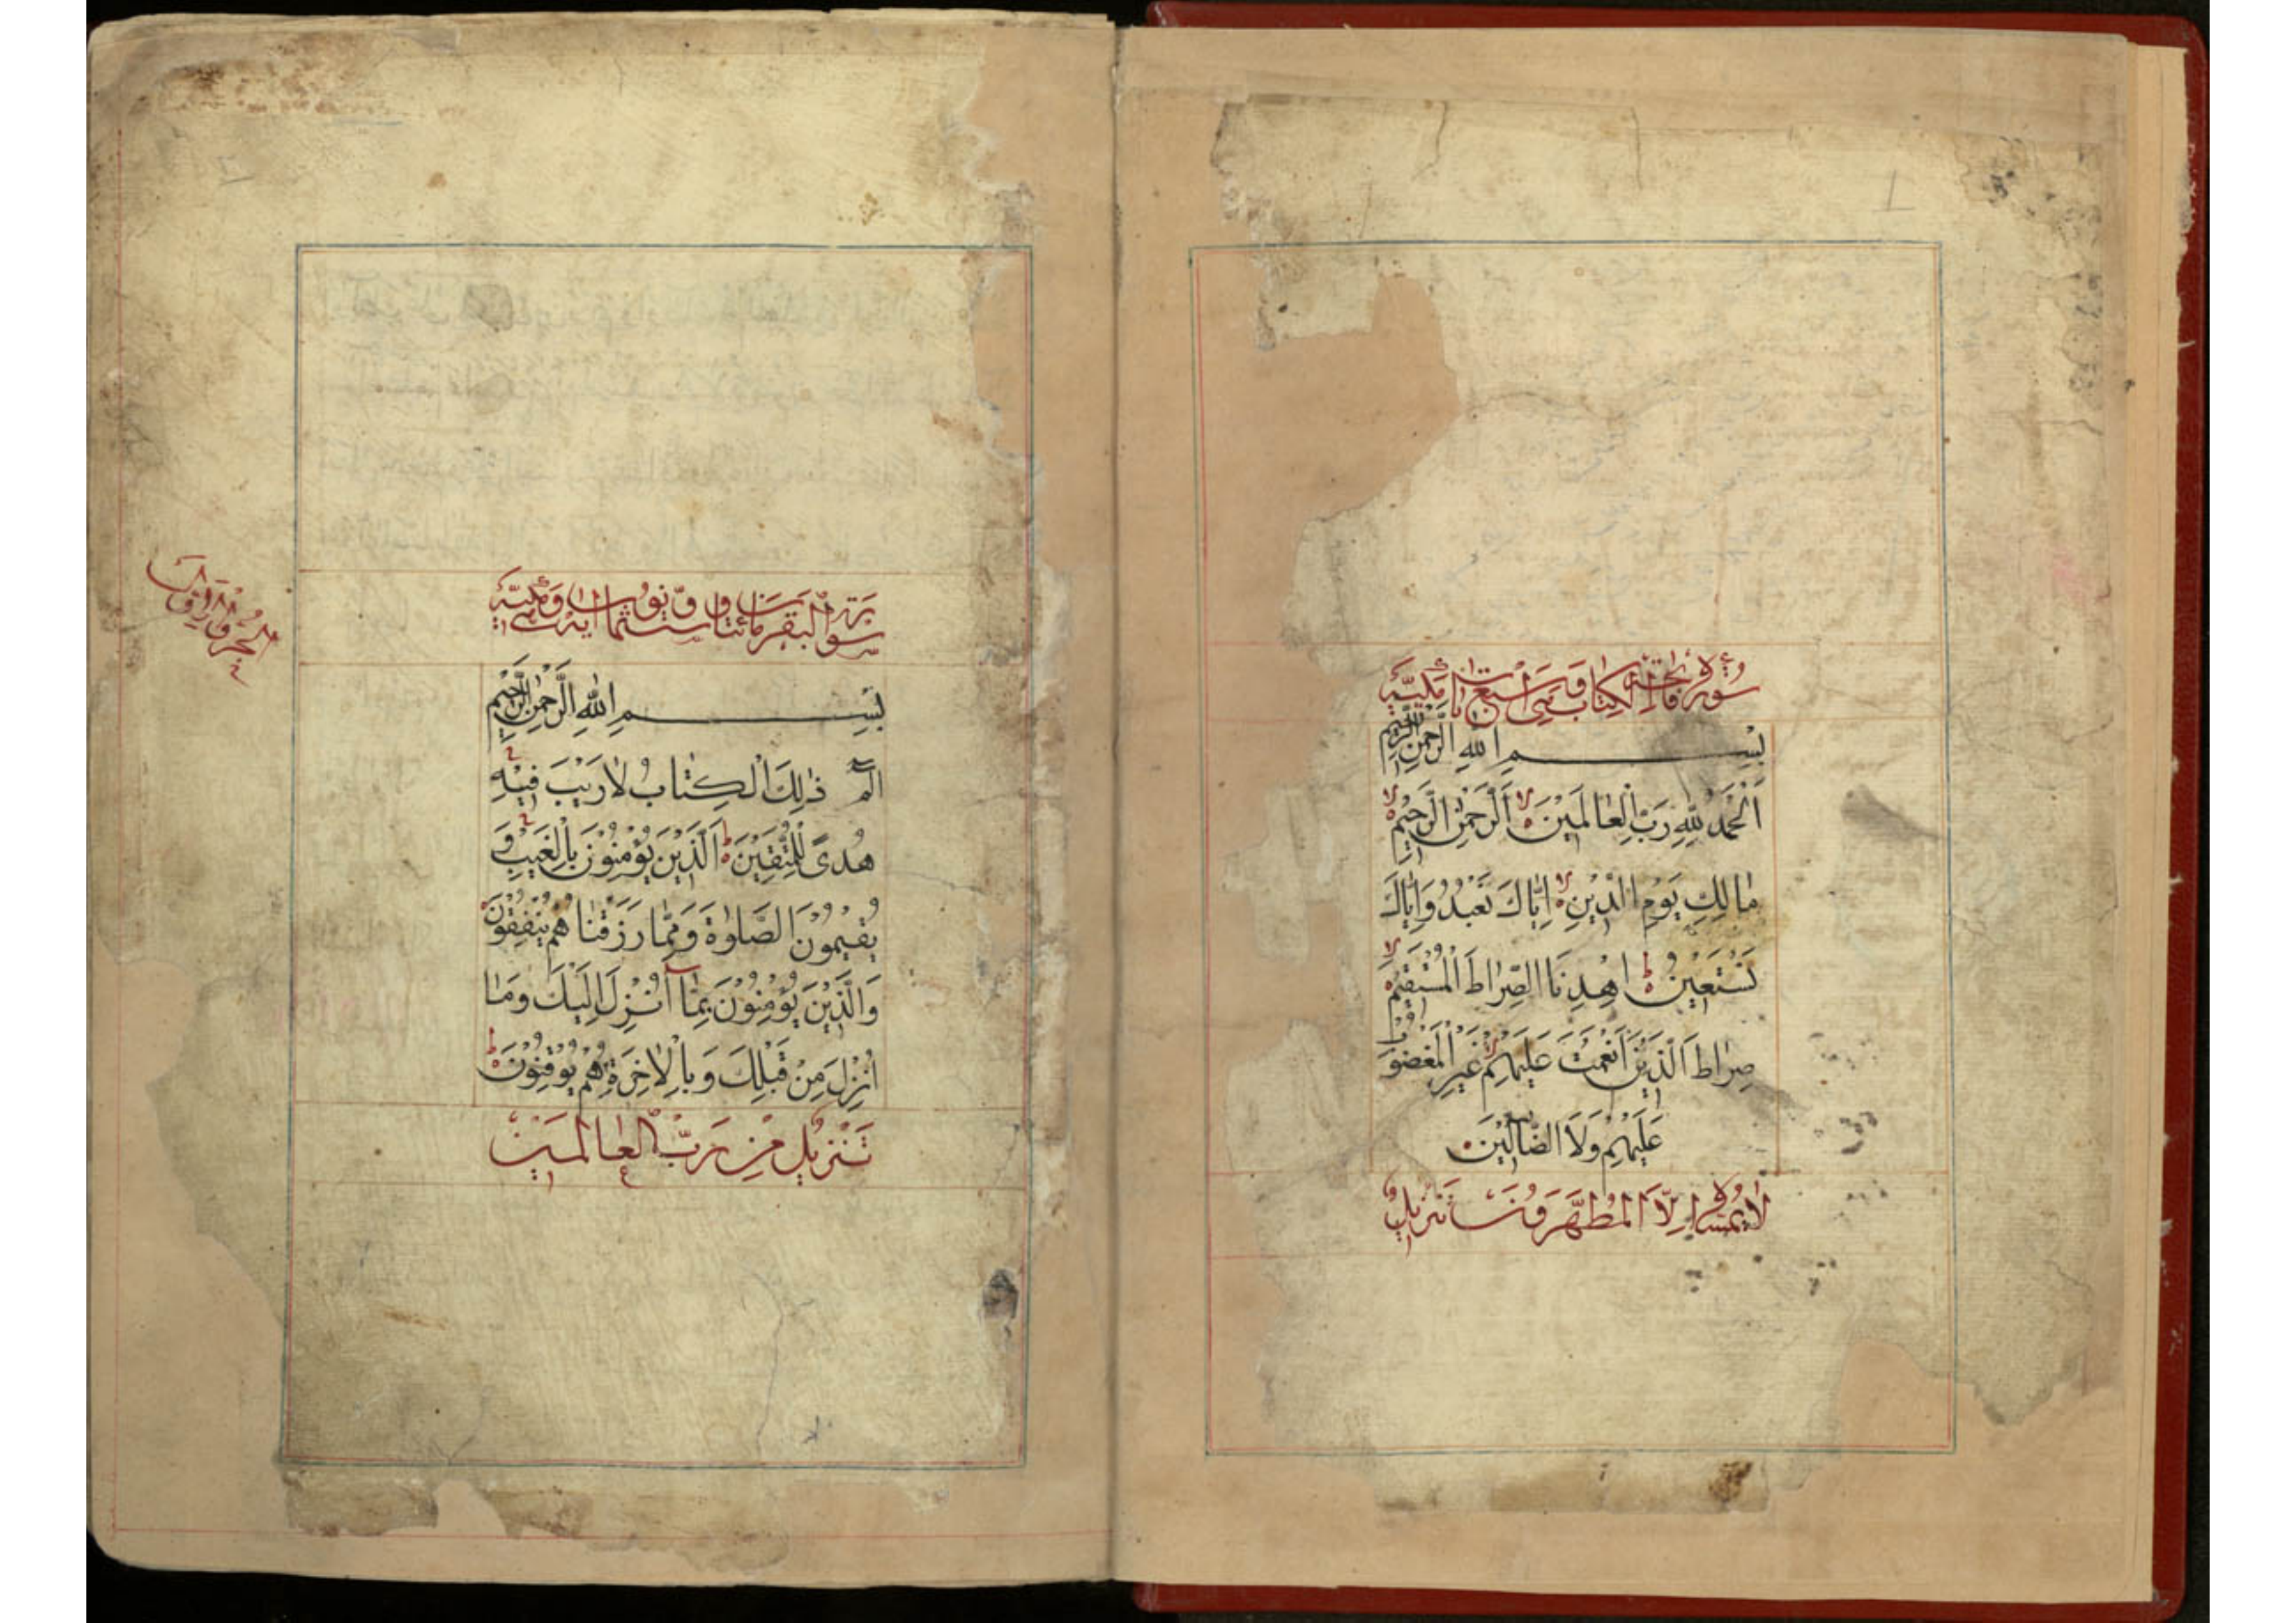 سُورَةُ فَاتِحَةِ الْكِتَابِ وَهِيَ سَبْعُ اٰيَاتٍ مَكِّيَّة
بِسْمِ اللّٰهِ الرَّحْمٰنِ الرَّحِيْمِ
اَلْحَمْدُ لِلّٰهِ رَبِّ الْعٰالَمِيْنَ لا اَلرَّحْمٰنِ الرَّحِيْمِ لا
مٰالِكِ يَوْمِ الدِّيْنِ لا اِيّٰاكَ نَعْبُدُ وَاِيّٰاكَ
نَسْتَعِيْنُ ط اِهْدِنَا الصِّرٰاطَ الْمُسْتَقِيْمَ لا
صِرٰاطَ الَّذِيْنَ اَنْعَمْتَ عَلَيْهِمْ لا غَيْرِ الْمَغْضُوْبِ
عَلَيْهِمْ وَلَا الضّٰٓالِّيْنَ
لٰا يَمَسُّهُ اِلَّا الْمُطَهَّرُوْنَ تَنْزِيْلٌ
سورة البقرة مائتان وست وثمانون اية وهي مكية
بِسْمِ اللّٰهِ الرَّحْمٰنِ الرَّحِيْمِ
الٓمٓ ذٰلِكَ الْكِتٰابُ لٰا رَيْبَ فِيْهِ
هُدًى لِلْمُتَّقِيْنَ ط اَلَّذِيْنَ يُؤْمِنُوْنَ بِالْغَيْبِ وَ
يُقِيْمُوْنَ الصَّلٰوةَ وَمِمّٰا رَزَقْنٰا هُمْ يُنْفِقُوْنَ
وَالَّذِيْنَ يُؤْمِنُوْنَ بِمٰٓا اُنْزِلَ اِلَيْكَ وَمٰا
اُنْزِلَ مِنْ قَبْلِكَ وَبِالْاٰخِرَةِ هُمْ يُوْقِنُوْنَ ط
تَنْزِيْلٌ مِنْ رَبِّ الْعٰالَمِيْنَ